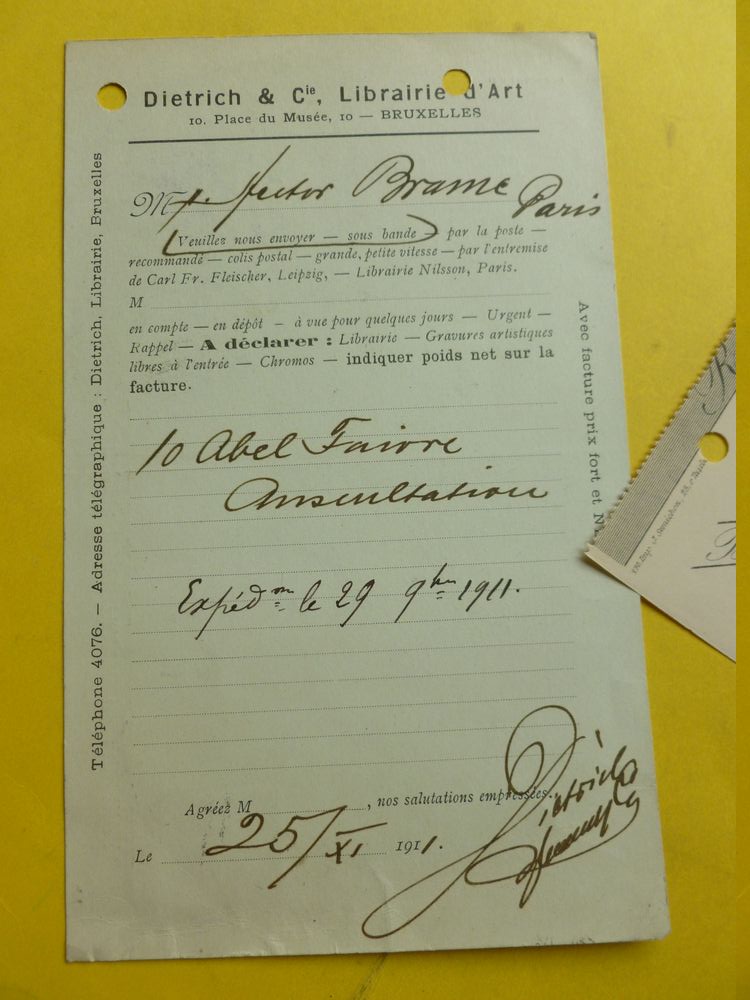 Dietrich & Cie, Librairie d'Art
10. Place du Musée, 10 — BRUXELLES
Mr. Hector Brame Paris
(Veuillez nous envoyer — sous bande) — par la poste —
recommandé — colis postal — grande, petite vitesse — par l'entremise
de Carl Fr. Fleischer, Leipzig, — Librairie Nilsson, Paris.
M
en compte — en dépôt — à vue pour quelques jours — Urgent —
Rappel — A déclarer : Librairie — Gravures artistiques
libres à l'entrée — Chromos — indiquer poids net sur la
facture.
10 Abel Faivre
Auscultation
Expédon le 29 9bre 1911.
Agréez M , nos salutations empressées.
Le 25/XI 1911.
Dietrich
Téléphone 4076. — Adresse télégraphique : Dietrich, Librairie, Bruxelles
Avec facture prix fort et N